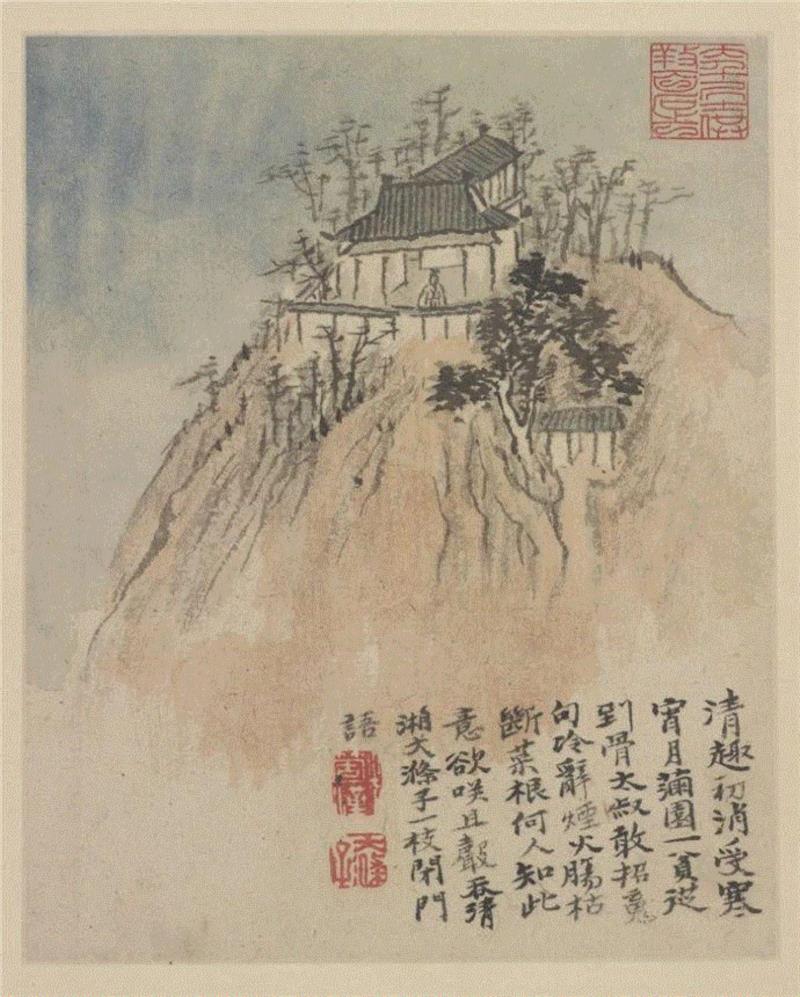 清趣初消受寒
宵月滿園一貧從
到骨太敢招魂
句冷辭煙火腸枯
斷菜根何人知此
意欲咲且聲吞清
湘大滌子一枝閉門
語